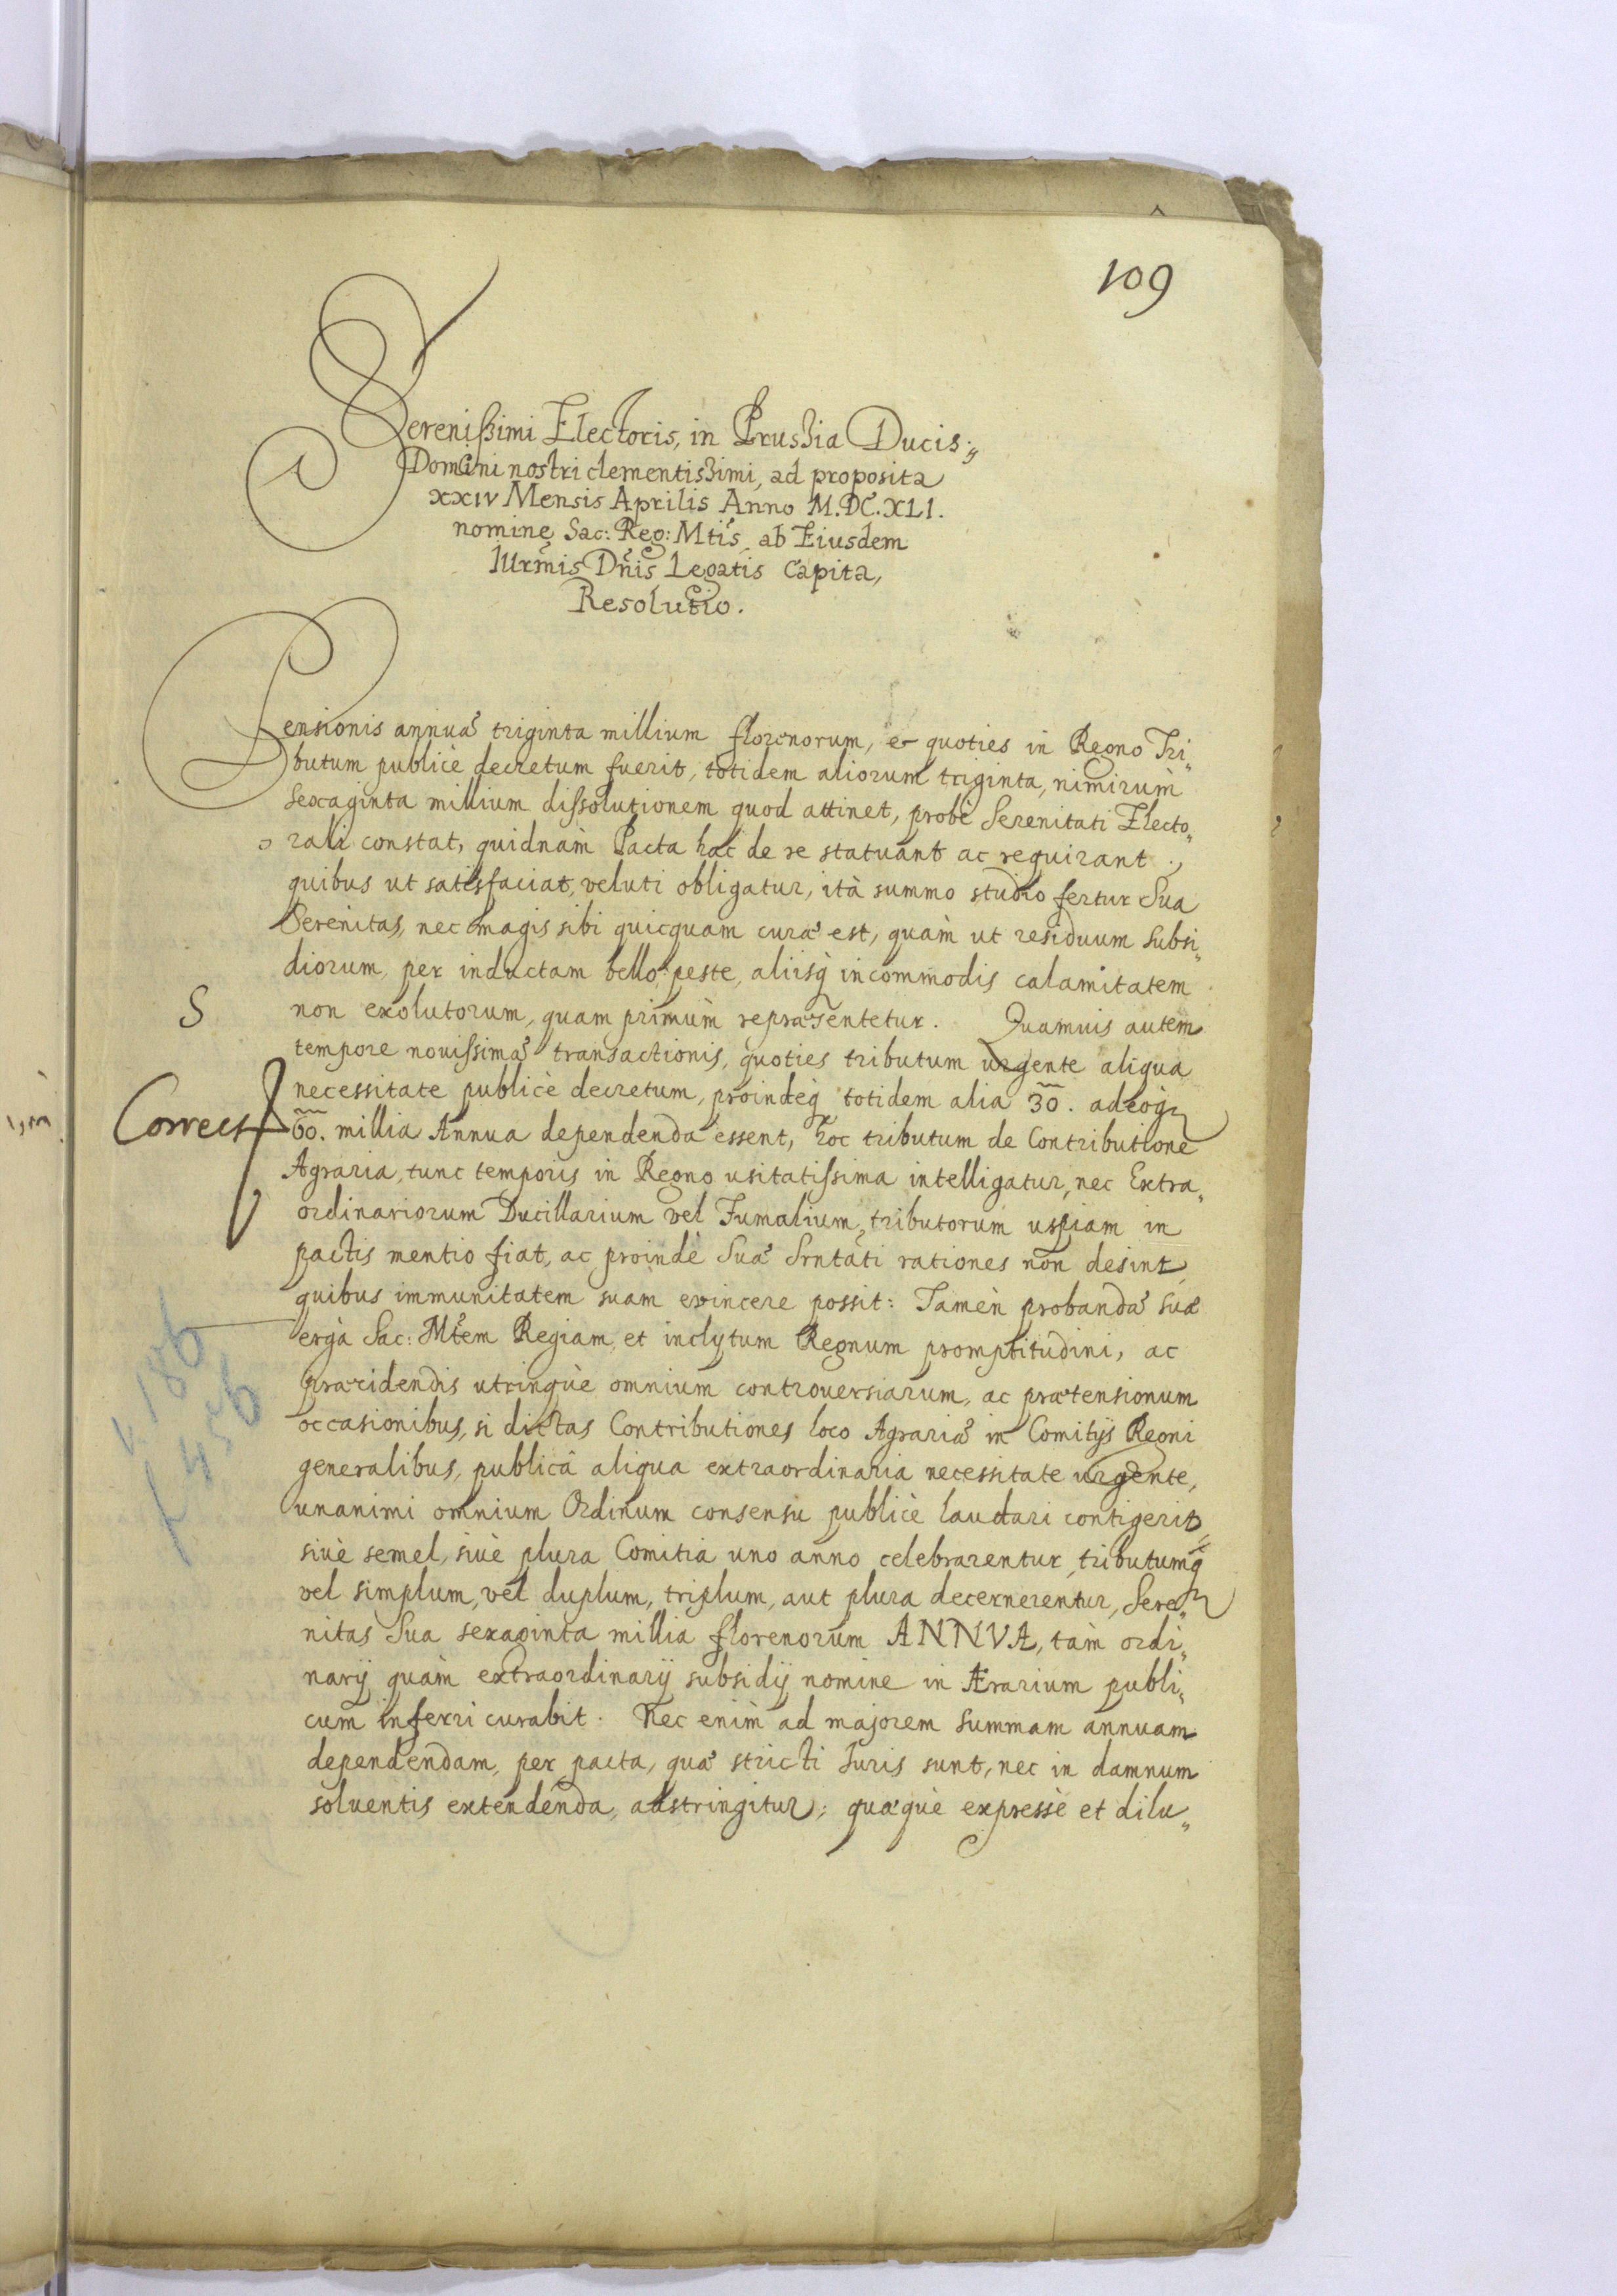 109
Serenissimi Electoris, in Prussia Ducis,
Domini nostri clementissimi, ad proposita
XXIV Mensis Aprilis Anno M.DC.XLI.
nomine Sac: Reg: Mtis, ab Eiusdem
Illrmis Dnis Legatis Capita,
Resolutio.
Pensionis annuæ triginta millium florenorum, et quoties in Regno Tri„
butum publicè decretum fuerit, totidem aliorum triginta, nimirùm
sexaginta millium dissolutionem quod attinet, probè Serenitati Electo„
rali constat, quidnàm Pacta hac de re statuant ac requirant;
quibus ut satisfaciat, veluti obligatur, ità summo studio fertur Sua
Serenitas, nec magis sibi quicquam curæ est, quàm ut residuum subsi„
diorum, per inductam bello, peste, aliisq incommodis calamitatem
S
non exolutorum, quam primùm repræsentetur. Quamuis autem
tempore nouissimæ transactionis, quoties tributum urgente aliqua
necessitate publicè decretum, proindeq totidem alia 30. adeoq
Correct
60. millia Annua dependenda essent, hoc tributum de Contributione
Agraria, tunc temporis in Regno usitatissima intelligatur, nec Extra„
ordinariorum Ducillarium vel Fumalium tributorum uspiam in
pactis mentio fiat, ac proindè Suæ Srntati rationes non desint,
quibus immunitatem suam evincere possit: Tamèn probandæ suæ
v. 186
ergà Sac: Mtem Regiam, et inclytum Regnum promptitudini, ac
præcidendis utrinquè omnium controuersiarum, ac prætensionum
f 456
occasionibus, si dictas Contributiones loco Agrariæ in Comitijs Regni
generalibus, publicâ aliqua extraordinaria necessitate urgente,
unanimi omnium Ordinum consensu publicè laudari contigerit,
siuè semel, siuè plura Comitia uno anno celebrarentur, tributumq
vel simplum, vel duplum, triplum, aut plura decernerentur, Sere„
nitas Sua sexaginta millia florenorum ANNVA, tàm ordi„
narij quàm extraordinarij subsidij nomine in Ærarium publi„
cum inferri curabit. Nec enim ad majorem summam annuam
dependendam, per pacta, quæ stricti Iuris sunt, nec in damnum
soluentis extendenda, adstringitur; quæquè expressè et dilu„